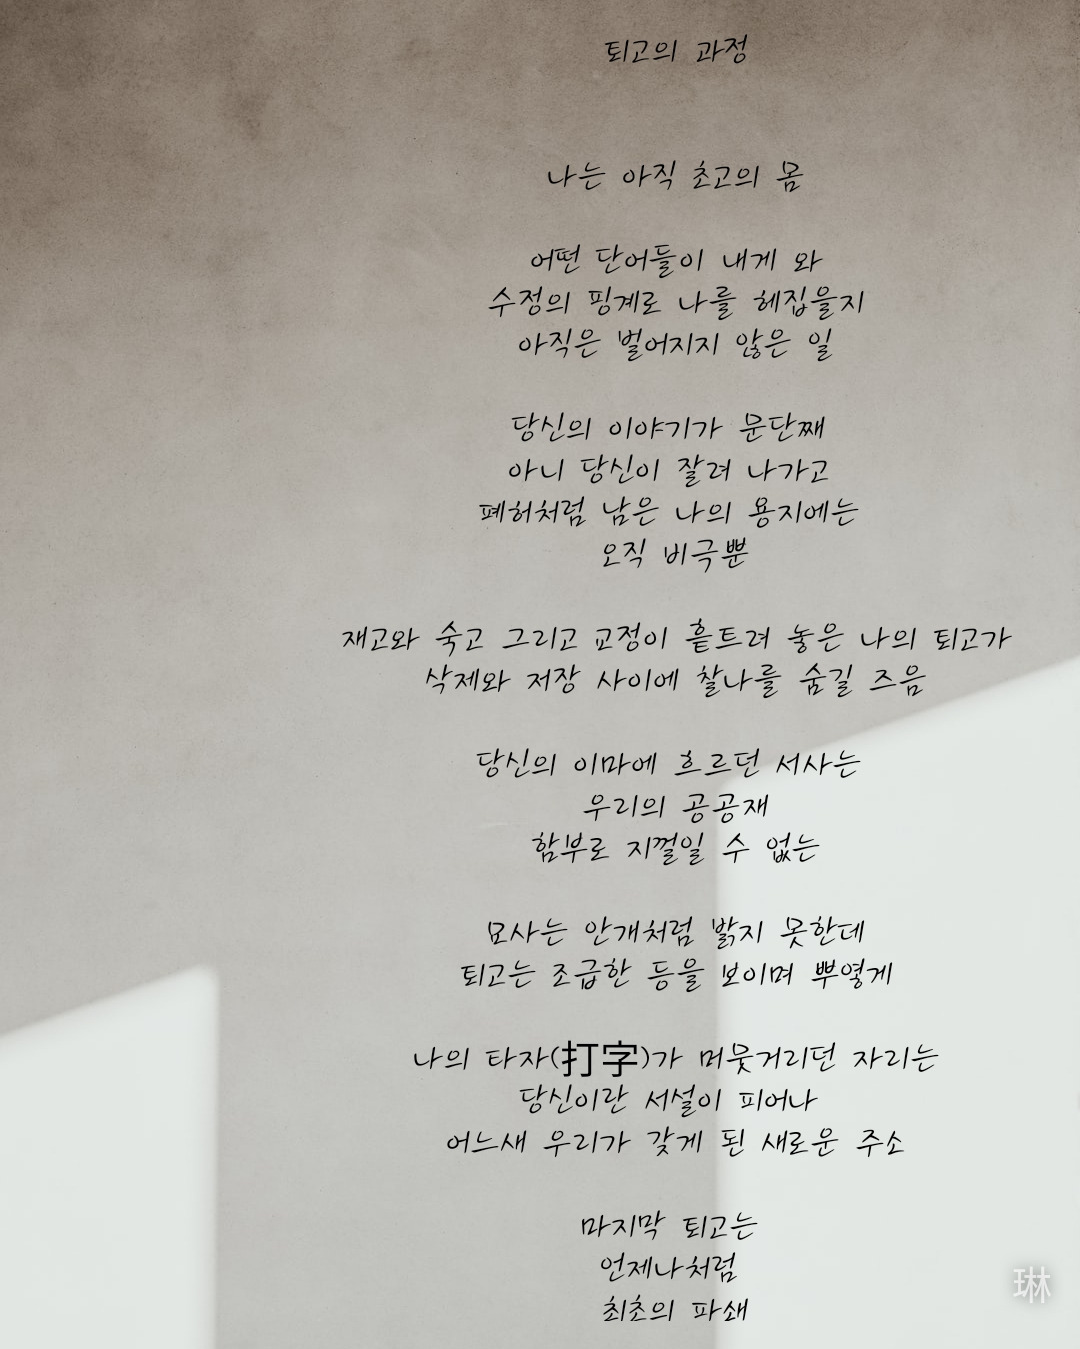 퇴고의 과정
나는 아직 초고의 몸
어떤 단어들이 내게 와
수정의 핑계로 나를 헤집을지
아직은 벌어지지 않은 일
당신의 이야기가 문단째
아니 당신이 잘려 나가고
폐허처럼 남은 나의 용지에는
오직 비극뿐
재고와 숙고 그리고 교정이 흩트려 놓은 나의 퇴고가
삭제와 저장 사이에 찰나를 숨길 즈음
당신의 이마에 흐르던 서사는
우리의 공공재
함부로 지껄일 수 없는
묘사는 안개처럼 밝지 못한데
퇴고는 조급한 등을 보이며 뿌옇게
나의 타자(打字)가 머뭇거리던 자리는
당신이란 서설이 피어나
어느새 우리가 갖게 된 새로운 주소
마지막 퇴고는
언제나처럼
최초의 파쇄
琳